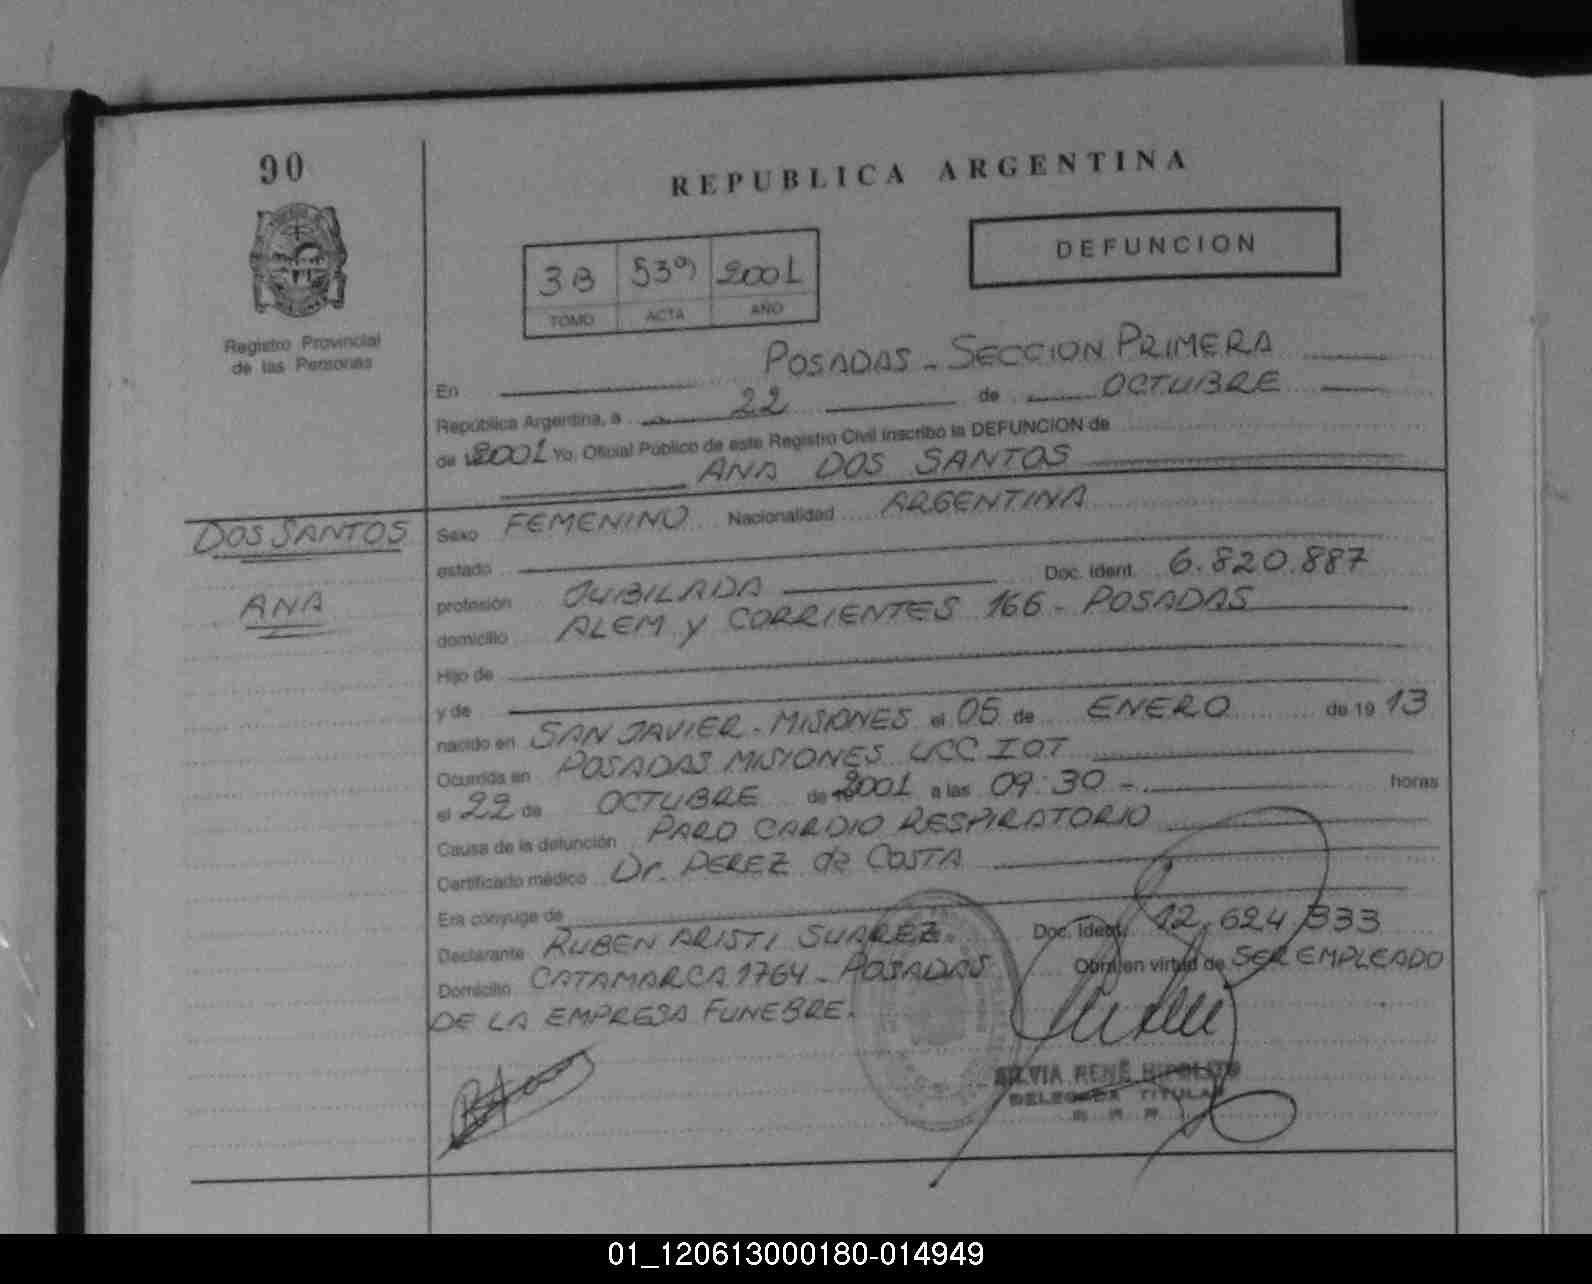 90
REPUBLICA ARGENTINA
DEFUNCION
3B 539 2001
TOMO ACTA AÑO
Registro Provincial
de las Personas
En POSADAS - SECCION PRIMERA
República Argentina, a 22 de OCTUBRE
de 2001 Yo, Oficial Público de este Registro Civil inscribo la DEFUNCION de
ANA DOS SANTOS
DOS SANTOS
ANA
Sexo FEMENINO Nacionalidad ARGENTINA
estado
profesión JUBILADA Doc. Ident. 6.820.887
domicilio ALEM y CORRIENTES 166 - POSADAS
Hijo de
y de
nacido en SAN JAVIER - MISIONES el 05 de ENERO de 19 13
Ocurrida en POSADAS MISIONES UCC IOT
el 22 de OCTUBRE de 2001 a las 09:30 - horas
Causa de la defunción PARO CARDIO RESPIRATORIO
Certificado médico Dr. PEREZ de COSTA
Era cónyuge de
Declarante RUBEN ARISTI SUAREZ. Doc. Ident. 12.624.333
Domicilio CATAMARCA 1764 - POSADAS Obra en virtud de SER EMPLEADO
DE LA EMPRESA FUNEBRE.
SILVIA RENÉ HIPOLITO
DELEGADA TITULAR
01_120613000180-014949